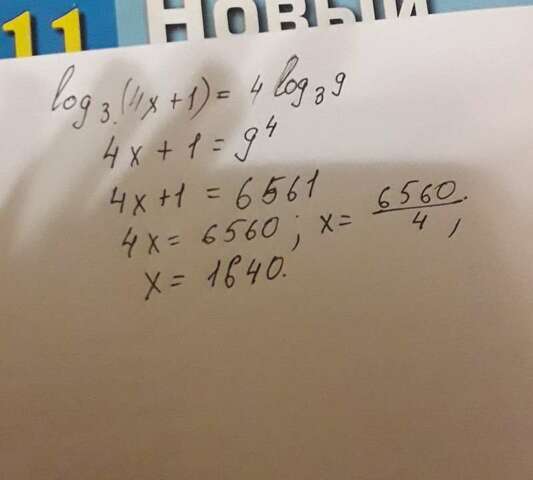 11 Новый
log₃(4x+1)= 4 log₃9
4x+1=9⁴
4x+1 = 6561
4x= 6560; x= 6560/4;
x= 1640.